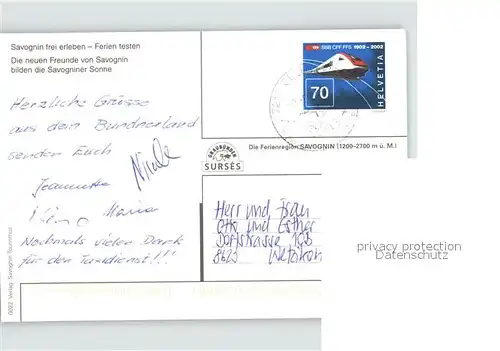 Savognin frei erleben – Ferien testen
Die neuen Freunde von Savognin
bilden die Savogniner Sonne
Herzliche Grüsse
aus dem Bündnerland
senden Euch
Nicole
Jeannette
Maria
Nochmals vielen Dank
für den Taxidienst!!!
0022 Verlag: Savognin Tourismus
SBB CFF FFS 1902 – 2002
70
HELVETIA
Die Ferienregion SAVOGNIN (1200–2700 m ü. M.)
GRAUBÜNDEN
SURSES
Herr und Frau
Otto und Esther
Dorfstrasse
8620 Wetzikon
privacy protection
Datenschutz